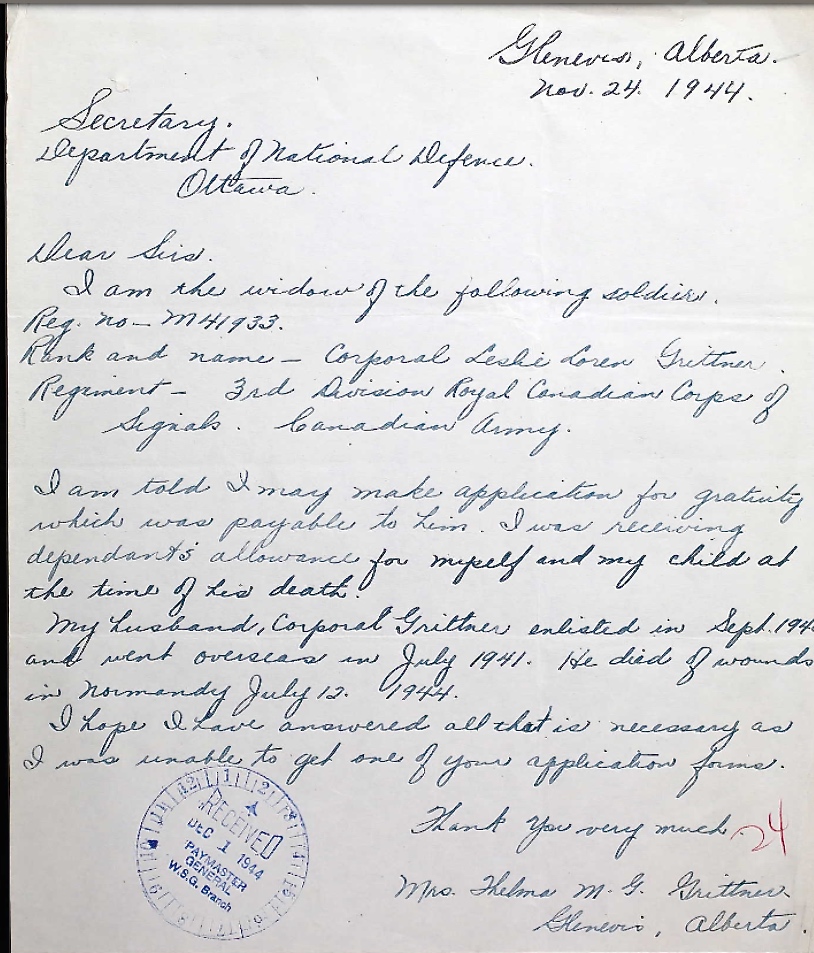 Glenevis, Alberta.
Nov. 24. 1944.
Secretary.
Department of National Defence.
Ottawa.
Dear Sirs.
I am the widow of the following soldier.
Reg. no - M41933.
Rank and name - Corporal Leslie Loren Grittner.
Regiment - 3rd Division Royal Canadian Corps of
Signals. Canadian Army.
I am told I may make application for grativity
which was payable to him. I was receiving
dependants' allowance for myself and my child at
the time of his death.
My husband, Corporal Grittner enlisted in Sept. 194
and went overseas in July 1941. He died of wounds
in Normandy July 12. 1944.
I hope I have answered all that is necessary as
I was unable to get one of your application forms.
Thank you very much.
24
Mrs. Thelma M. G. Grittner.
Glenevis, Alberta.
RECEIVED
DEC 1 1944
PAYMASTER
GENERAL
W.S.G. Branch